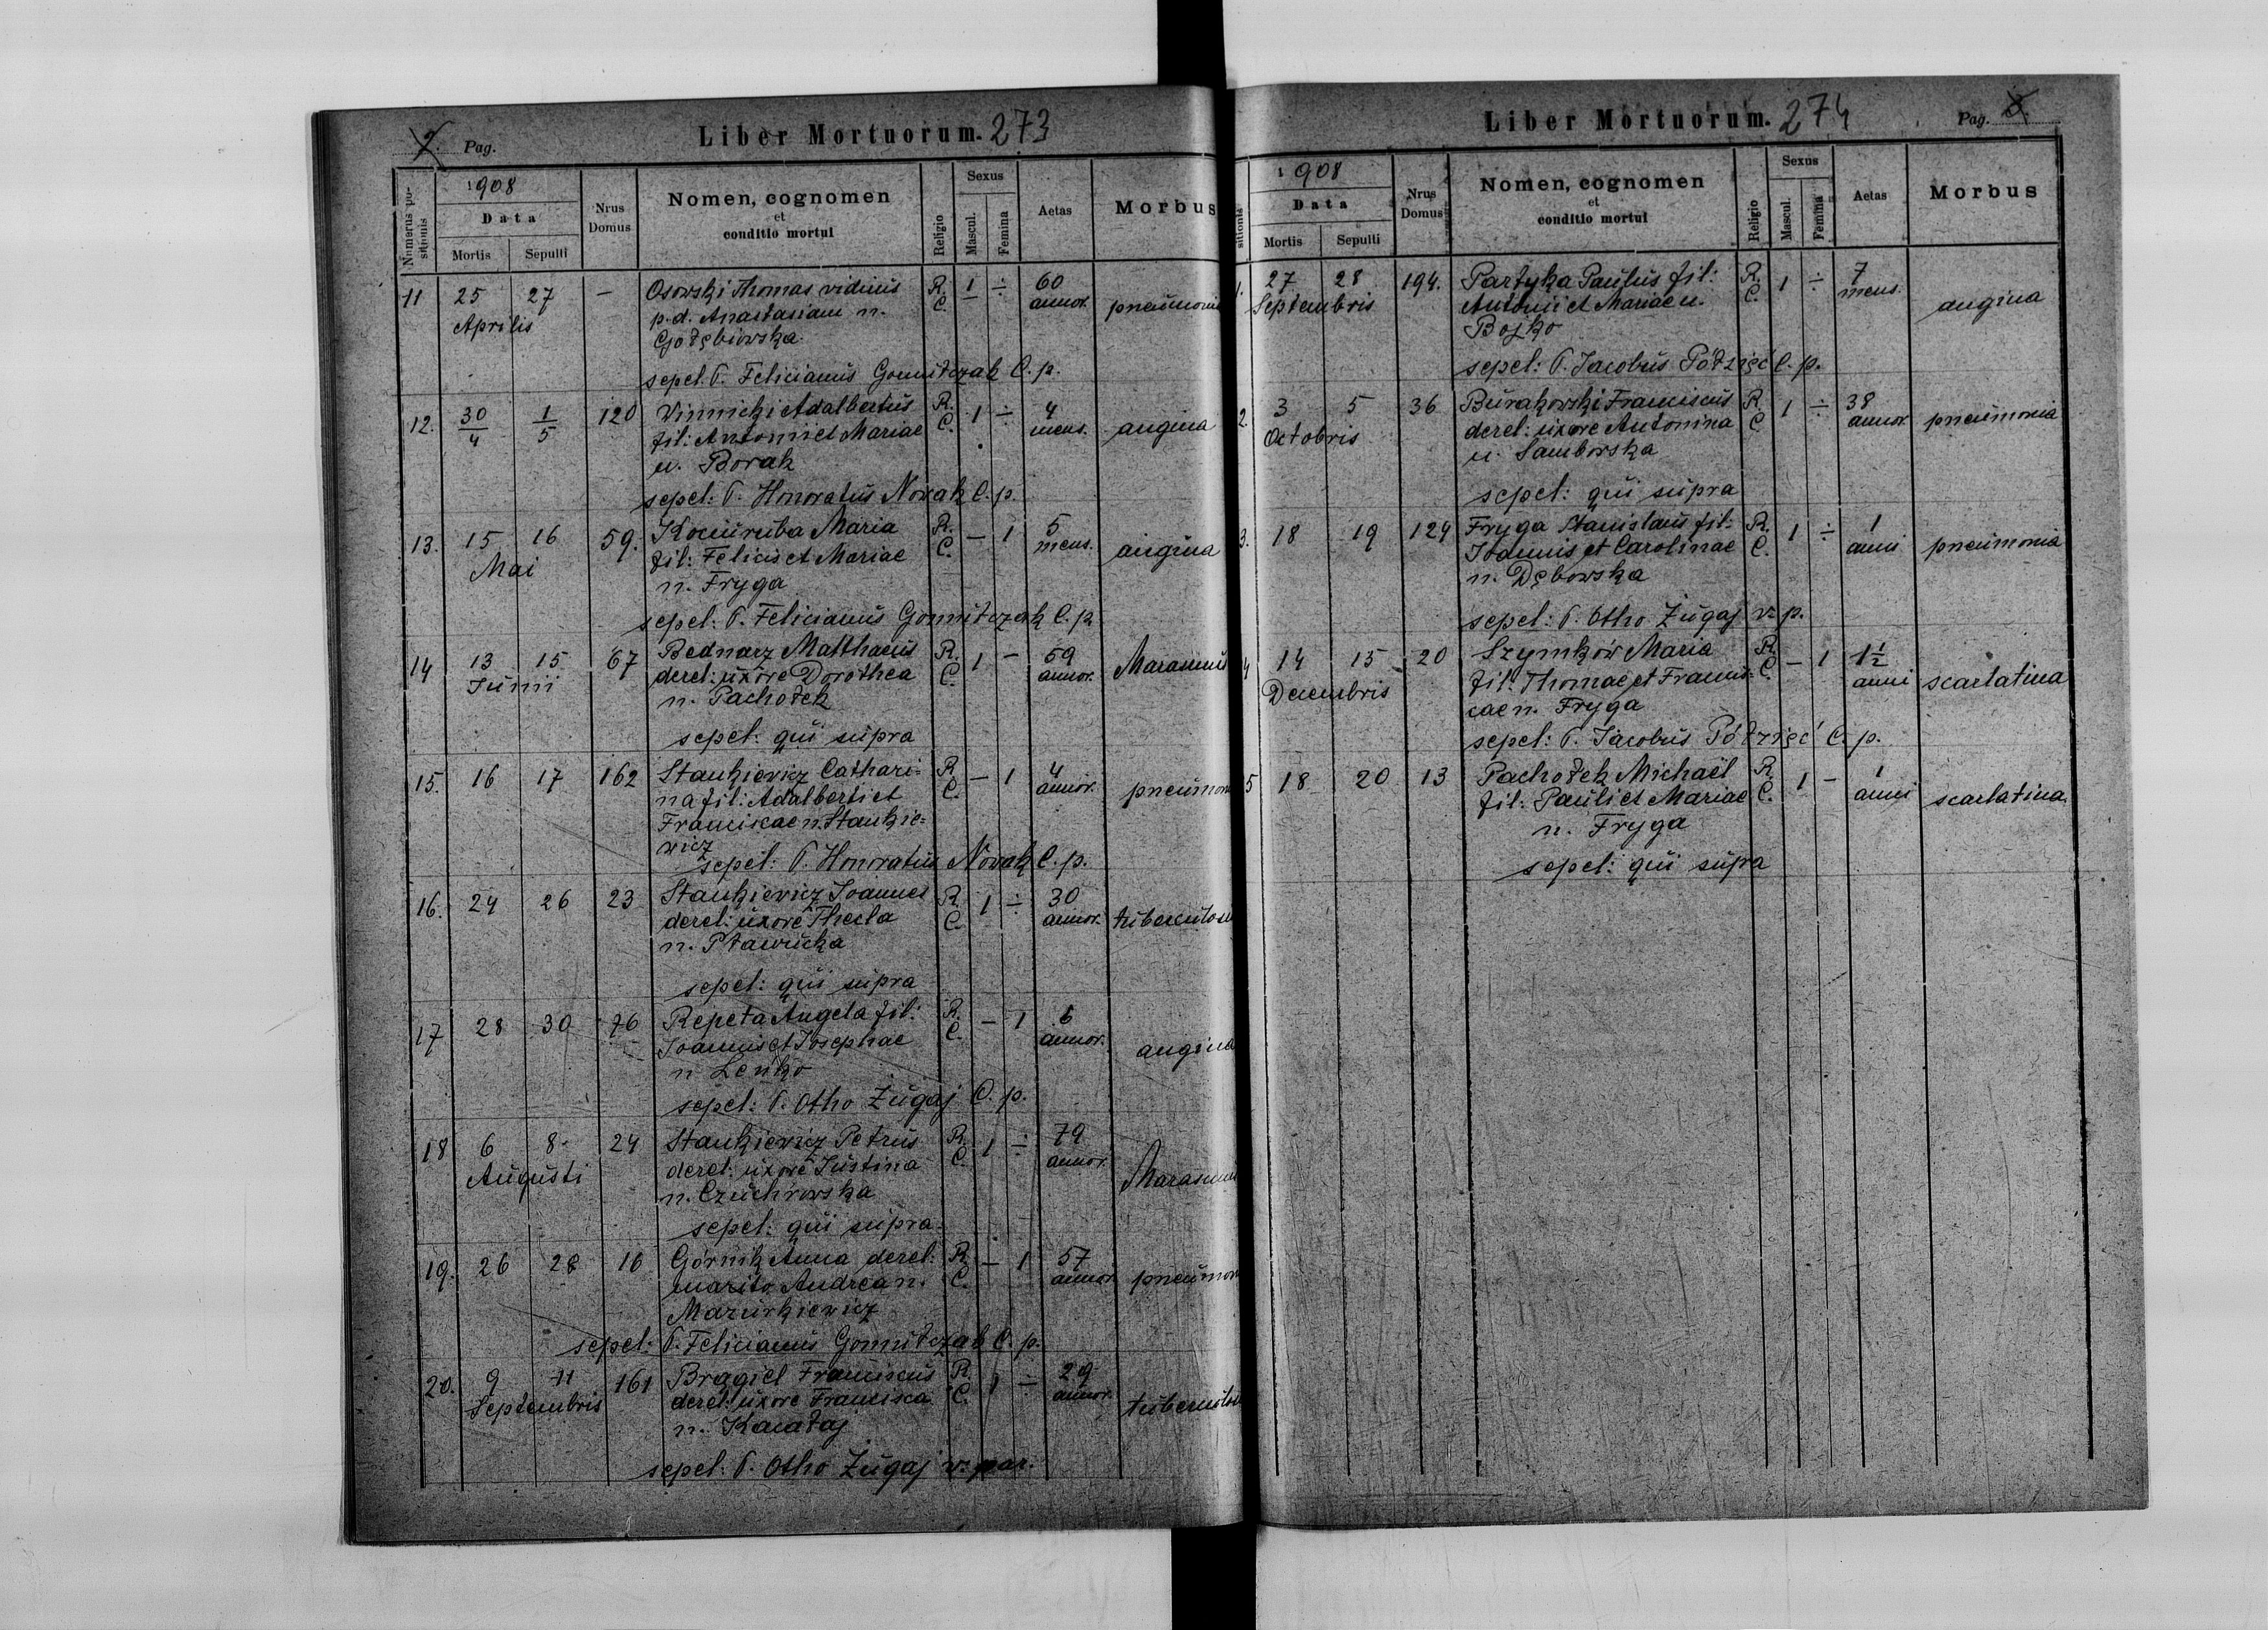 7. Pag. Liber Mortuorum. 273
Numerus positionis
1908
Data
Mortis Sepulti
Nrus Domus
Nomen, cognomen
et
conditio mortui
Religio
Sexus
Mascul. Femina
Aetas
Morbus
11 25 27 — Osowski Thomas viduus R. 1 ÷ 60
Aprilis p. d. Anastasiam n. C. annor. pneumonia
Gołębiowska
sepel. P. Felicianus Gomułczak C. p.
12. 30/4 1/5 120 Winnicki Adalbertus R. 1 ÷ 4
fil: Antonii et Mariae C. mens. angina
n. Borak
sepel: P. Honoratus Nowak C. p.
13. 15 16 59. Kociuruba Maria R. — 1 5
Mai fil: Felicis et Mariae C. mens. angina
n. Fryga
sepel: P. Felicianus Gomułczak C. p.
14 13 15 67 Bednarz Matthaeus R. 1 — 59
Junii derel: uxore Dorothea C. annor. Marasmus
n. Pachołek
sepel: qui supra
15. 16 17 162 Stankiewicz Cathari= R. — 1 4
na fil: Adalberti et C. annor. pneumon
Franciscae n. Stankie=
wicz
sepel: P. Honoratus Nowak C. p.
16. 24 26 23 Stankiewicz Joannes R. 1 ÷ 30
derel: uxore Thecla C. annor. tuberculos
n. Pławucka
sepel: qui supra
17 28 30 76 Repeta Angela fil: R. — 1 6
Joannis et Josephae C. annor. angina
n Leńko
sepel: P. Otho Żugaj C. p.
18 6 8 24 Stankiewicz Petrus R. 1 ÷ 79
Augusti derel: uxore Justina C. annor. Marasmus
n. Czuchrowska
sepel: qui supra
19. 26 28 16 Górnik Anna derel: R. — 1 57
marito Andrea n. C. annor. pneumon
Mazurkiewicz
sepel: P. Felicianus Gomułczak C. p.
20. 9 11 161 Brągiel Franciscus R. 1 — 29
Septembris derel: uxore Francisca C. annor. tuberculos
n. Kaczałaj
sepel: P. Otho Żugaj v. par.
Liber Mortuorum. 274 Pag. 8.
sitionis
1908
Data
Mortis Sepulti
Nrus Domus
Nomen, cognomen
et
conditio mortui
Religio
Sexus
Mascul. Femina
Aetas
Morbus
1. 27 28 194. Partyka Paulus fil: R. 1 ÷ 7
Septembris Antonii et Mariae n. C. mens. angina
Bojko
sepel: P. Jacobus Półzięć C. p.
2. 3 5 36 Burakowski Franciscus R. 1 ÷ 38
Octobris derel: uxore Antonina C. annor. pneumonia
n. Samborska
sepel: qui supra
3. 18 19 124 Fryga Stanislaus fil: R. 1 ÷ 1
Joannis et Carolinae C. anni pneumonia
n. Dębowska
sepel: P. Otho Żugaj v. p.
4 14 15 20 Szymków Maria R. — 1 1½
Decembris fil: Thomae et Francis= C. anni scarlatina
cae n. Fryga
sepel: P. Jacobus Półzięć C. p.
5 18 20 13 Pachołek Michaël R. 1 — 1
fil: Pauli et Mariae C. anni scarlatina.
n. Fryga
sepel: qui supra